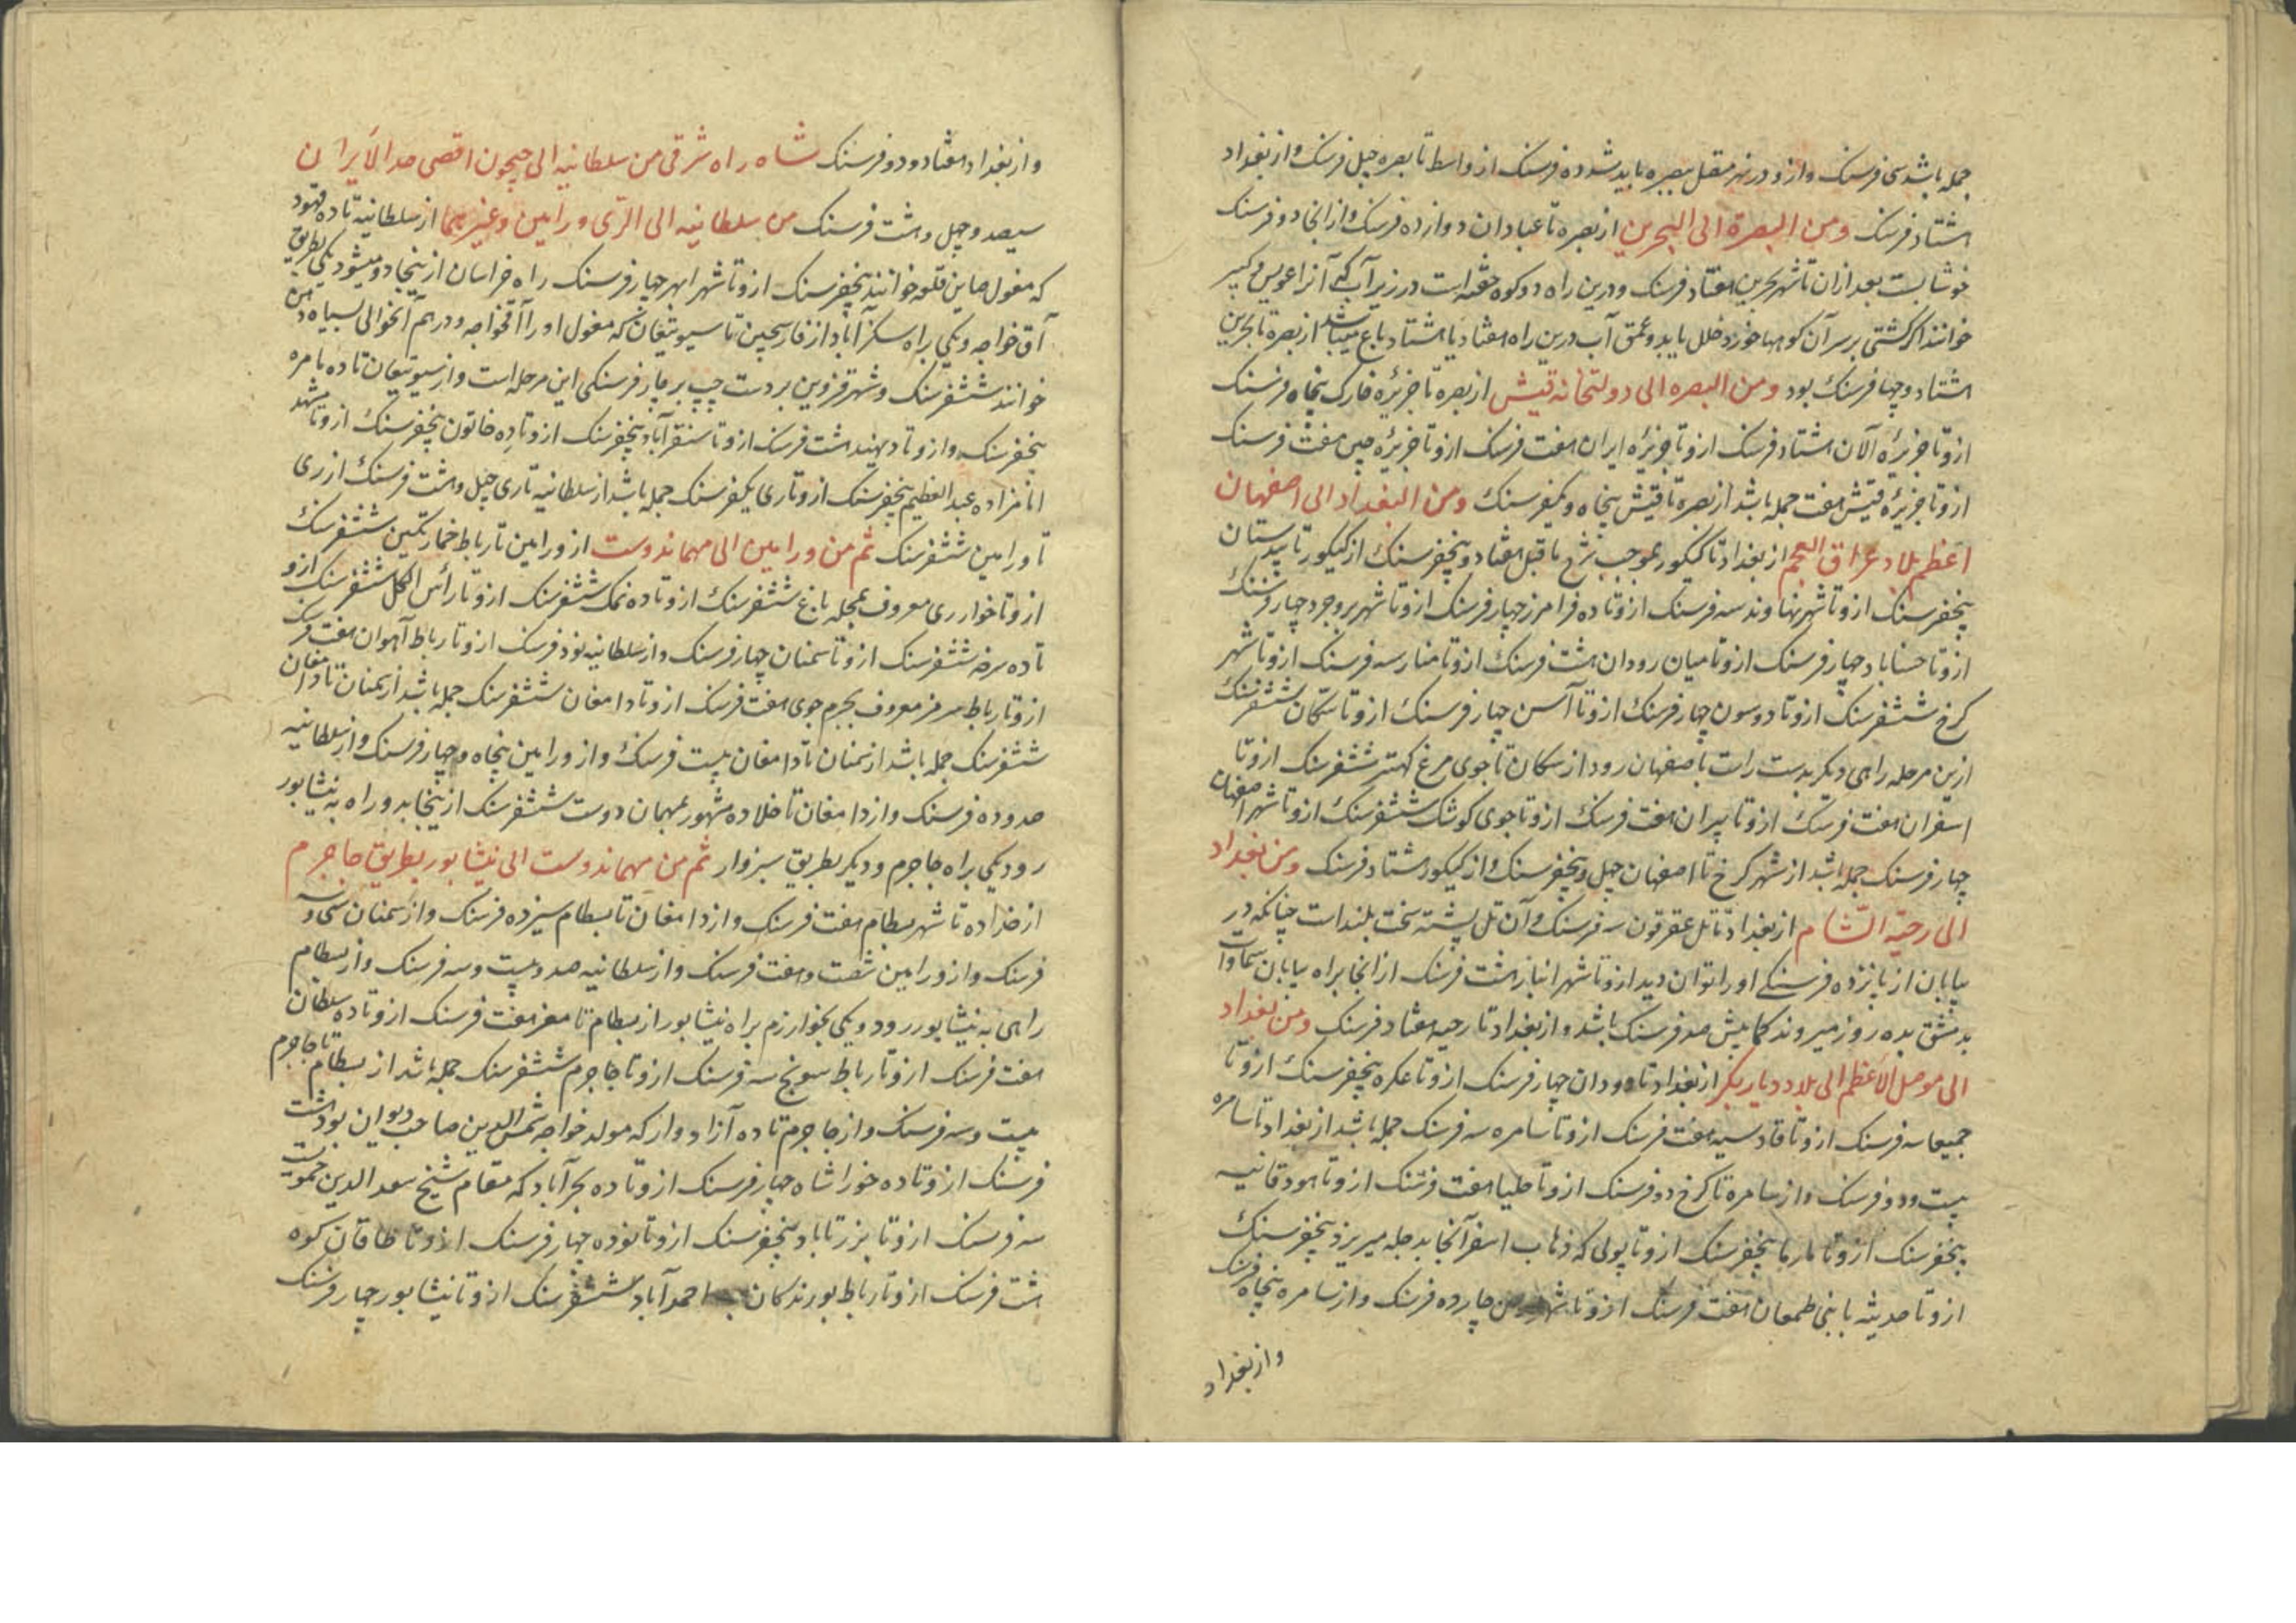 جمله باشد سی فرسنک وازو در نهر معقل ببصره باید شد ده فرسنک از واسط تا بصره چهل فرسنک و از بغداد
هشتاد فرسنک ومن البصرة الی البحرین از بصره تا عبادان دوازده فرسنک و از انجا دو فرسنک
خوشابست بعد از ان تا شهر بحرین هفتاد فرسنک و درین راه دو کوه خفته است در زیر آب که آنرا عویر و کسیر
خوانند اکر کشتی بر سر آن کوهها خورد خلل یابد و عمق آب درین راه هفتاد یا هشتاد باع میباشد از بصره تا بحرین
هشتاد و چهار فرسنک بود ومن البصره الی دولتخانه قیش از بصره تا جزیرۀ خارک پنجاه فرسنک
ازو تا جزیرۀ الان هشتاد فرسنک ازو تا جزیرۀ ایران هفت فرسنک ازو تا جزیرۀ چین هفت فرسنک
ازو تا جزیرۀ قیش هفت جمله باشد از بصره تا قیش پنجاه و یکفرسنک ومن البغداد الی اصفهان
اعظم بلاد عراق العجم از بغداد تا کنکور بموجب شرح ماقبل هفتاد و پنجفرسنک از کنکور تا بیدستان
پنجفرسنک ازو تا شهر نهاوند سه فرسنک ازو تا ده فرامرز چهار فرسنک ازو تا شهر بروجرد چهار فرسنک
ازو تا حساباد چهار فرسنک ازو تا میان رودان هشت فرسنک ازو تا منار سه فرسنک ازو تا شهر
کرخ ششفرسنک ازو تا دوسون چهار فرسنک ازو تا آسن چهار فرسنک ازو تا سکان ششفرسنک
ازین مرحله راهی دیکر بدست راست باصفهان رود از سکان تا جوی مرغ کهتر ششفرسنک ازو تا
اسفران هفت فرسنک ازو تا تیران هفت فرسنک ازو تا جوی کوشک ششفرسنک ازو تا شهر اصفهان
چهار فرسنک جمله باشد از شهر کرخ تا اصفهان چهل و پنجفرسنک و از کنکور هشتاد فرسنک ومن بغداد
الی رحبة الشام از بغداد تا تل عقرقوف سه فرسنک و آن تل پشته سخت بلند است چنانکه در
بیابان از پانزده فرسنکی او را توان دید ازو تا شهر انبار هشت فرسنک از انجا براه بیابان سماوات
بدمشق بده روز میروند کمابیش صد فرسنک باشد و از بغداد تا رحبه هفتاد فرسنک ومن بغداد
الی موصل الاعظم الی بلاد دیار بکر از بغداد تا رودان چهار فرسنک ازو تا عکره پنجفرسنک ازو تا
جمیعا سه فرسنک ازو تا قادسیه هفت فرسنک ازو تا سامره سه فرسنک جمله باشد از بغداد تا سامره
بیست و دو فرسنک و از سامره تا کرخ دو فرسنک ازو تا حلیا هفت فرسنک ازو تا هودقانیه
پنجفرسنک ازو تا بارما پنجفرسنک ازو تا پولی که ذهاب اسفر آنجا بدجله میریزد پنجفرسنک
ازو تا حدیثه با بنی طمعان هفت فرسنک ازو تا شهر چارده فرسنک و از سامره پنجاه فرسنک
و از بغداد
و از بغداد هفتاد و دو فرسنک شاه راه شرقی من سلطانیه الی جیحون اقصی حد الایران
سیصد و چهل و هشت فرسنک من سلطانیه الی الری و رامین و غیرهما از سلطانیه تا ده قهود
که مغول صاین قلعه خوانند پنجفرسنک ازو تا شهر ابهر چهار فرسنک راه خراسان از ینجا دو میشود یکی بطریق
آق خواجه و یکی براه سکز آباد از فارسجین تا سیوتیغان که مغول او را آقخواجه و در هم آنحوالی سیاه دهن
خوانند ششفرسنک و شهر قزوین بردست چپ بر چار فرسنکی این مرحله است و از سیوتیغان تا ده بامره
پنجفرسنک و ازو تا دیهند هشت فرسنک ازو تا سنقر آباد پنجفرسنک ازو تا ده خاتون پنجفرسنک ازو تا مشهد
امامزاده عبد العظیم پنجفرسنک ازو تا ری یکفرسنک جمله باشد از سلطانیه تا ری چهل و هشت فرسنک از ری
تا ورامین ششفرسنک ثم من ورامین الی مهماندوست از ورامین تا رباط خمارتکین ششفرسنک
ازو تا خوار ری معروف بمحله باغ ششفرسنک ازو تا ده نمک ششفرسنک ازو تا رأس الکل ششفرسنک ازو
تا ده سرخ ششفرسنک ازو تا سمنان چهار فرسنک و از سلطانیه نود فرسنک ازو تا رباط آهوان هفت فرسنک
ازو تا رباط هرمز معروف بجرم جوی هفت فرسنک ازو تا دامغان ششفرسنک جمله باشد از سمنان تا دامغان
ششفرسنک جمله باشد از سمنان تا دامغان بیست فرسنک و از ورامین پنجاه و چهار فرسنک و از سلطانیه
صد و ده فرسنک و از دامغان تا خلاده مشهور بمهمان دوست ششفرسنک از ینجا بدو راه به نیشابور
رود یکی براه جاجرم و دیکر بطریق سبزوار ثم من مهماندوست الی نیشابور بطریق جاجرم
از خداده تا شهر بسطام هفت فرسنک و از دامغان تا بسطام سیزده فرسنک و از سمنان سی و سه
فرسنک و از ورامین شصت و هفت فرسنک و از سلطانیه صد و بیست و سه فرسنک و از بسطام
راهی به نیشابور رود و یکی بخوارزم براه نیشابور از بسطام تا مغز هفت فرسنک ازو تا ده سلطان
هفت فرسنک ازو تا رباط سونج سه فرسنک ازو تا جاجرم ششفرسنک جمله باشد از بسطام تا جاجرم
بیست و سه فرسنک و از جاجرم تا ده آزادوار که مولد خواجه شمس الدین صاحب دیوان بود هشت
فرسنک ازو تا ده خوراشاه چهار فرسنک ازو تا ده بحر آباد که مقام شیخ سعد الدین حمویست
سه فرسنک ازو تا بزرتاباد پنجفرسنک ازو تا نوده چهار فرسنک ازو تا طاقان کوه
هشت فرسنک ازو تا رباط بورندکان احمد آباد ششفرسنک ازو تا نیشابور چهار فرسنک